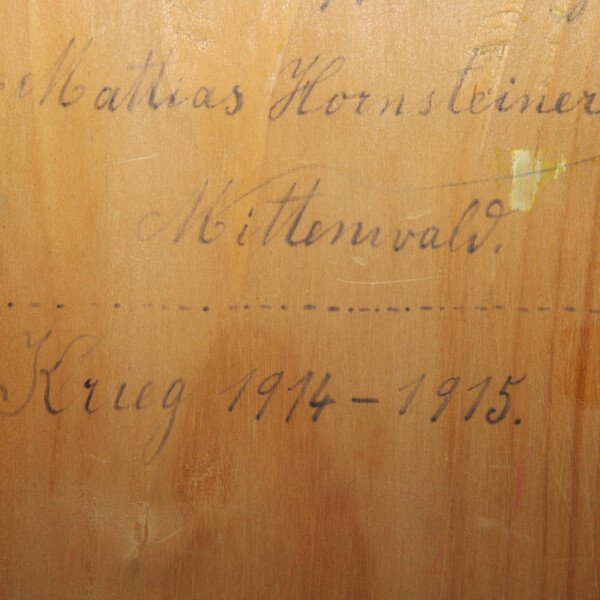 Mathias Hornsteiner
Mittenwald.
Krieg 1914 – 1915.